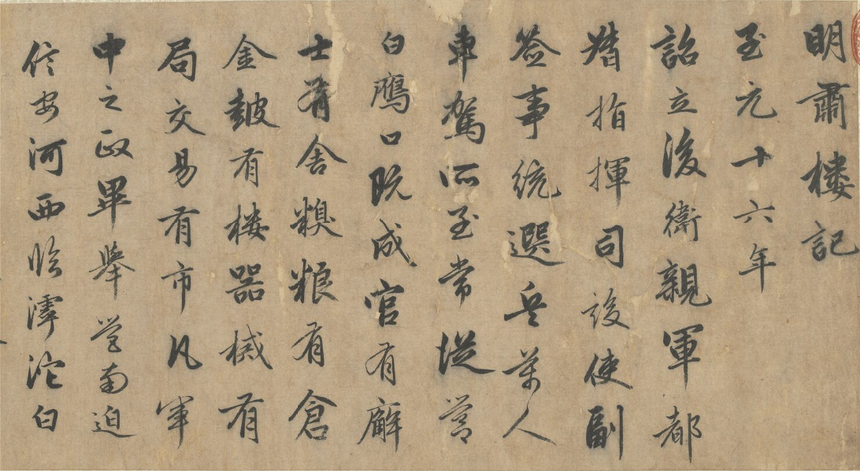 明肅楼記
至元十六年
詔立後衛親軍都
指揮司設使副
簽事統選兵萬人
車駕所至常從營
白鴈口既成官有廨
士有舍糗粮有倉
金皷有楼器械有
局交易有市凡軍
中之政畢舉營南迫
信安河西臨滹沱白